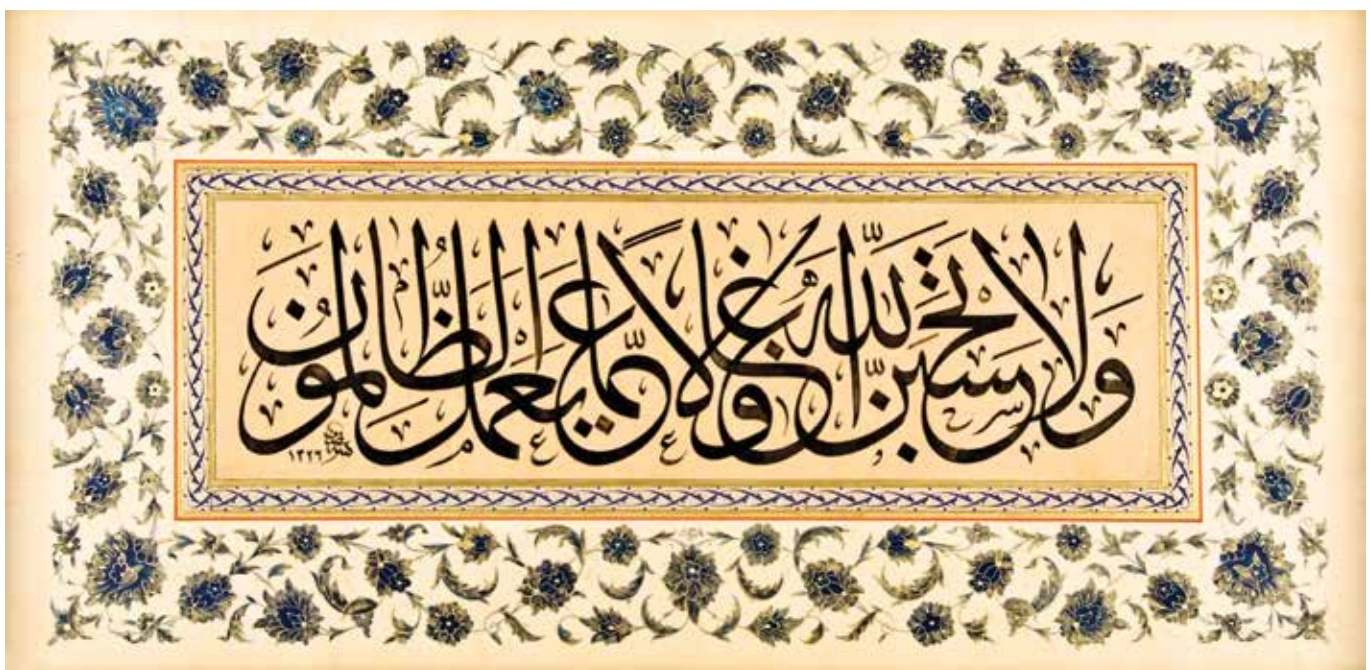 وَلَا تَحْسَبَنَّ اللَّهَ غَافِلًا عَمَّا يَعْمَلُ الظَّالِمُونَ
١٣٢٦